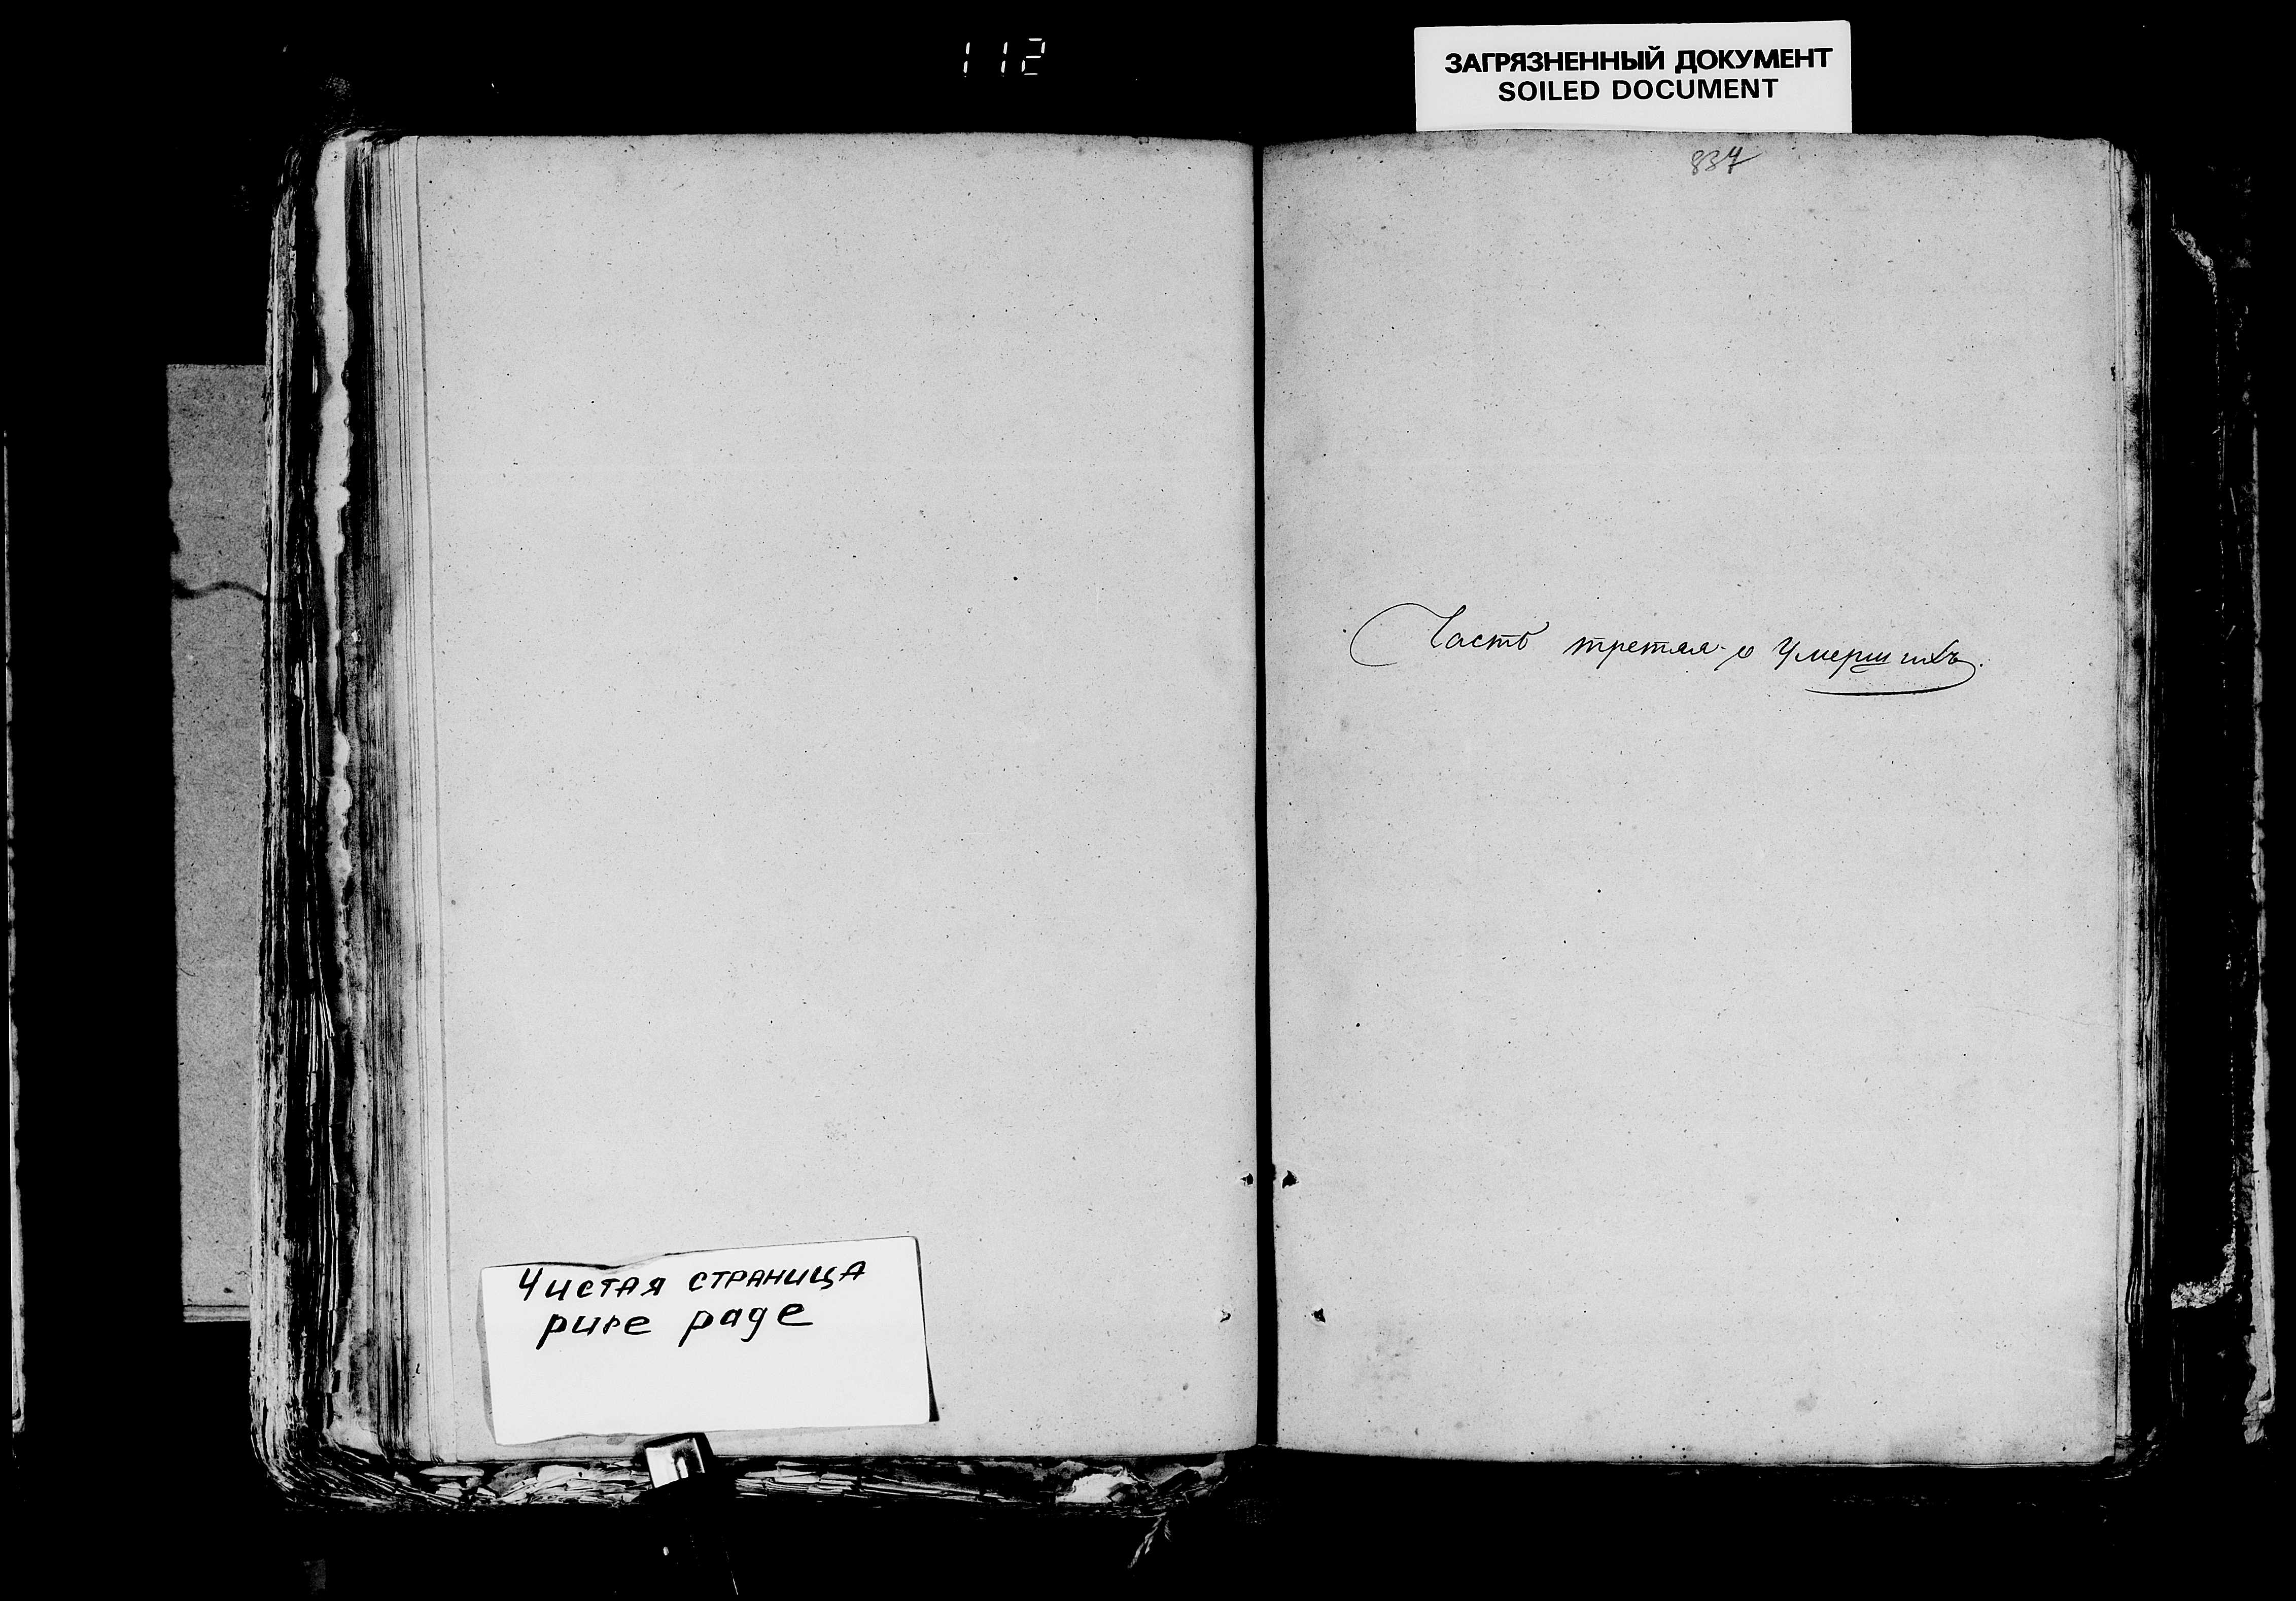 112
ЗАГРЯЗНЕННЫЙ ДОКУМЕНТ
SOILED DOCUMENT
837
Часть третяя о Умершихъ.
Чистая страница
pure page